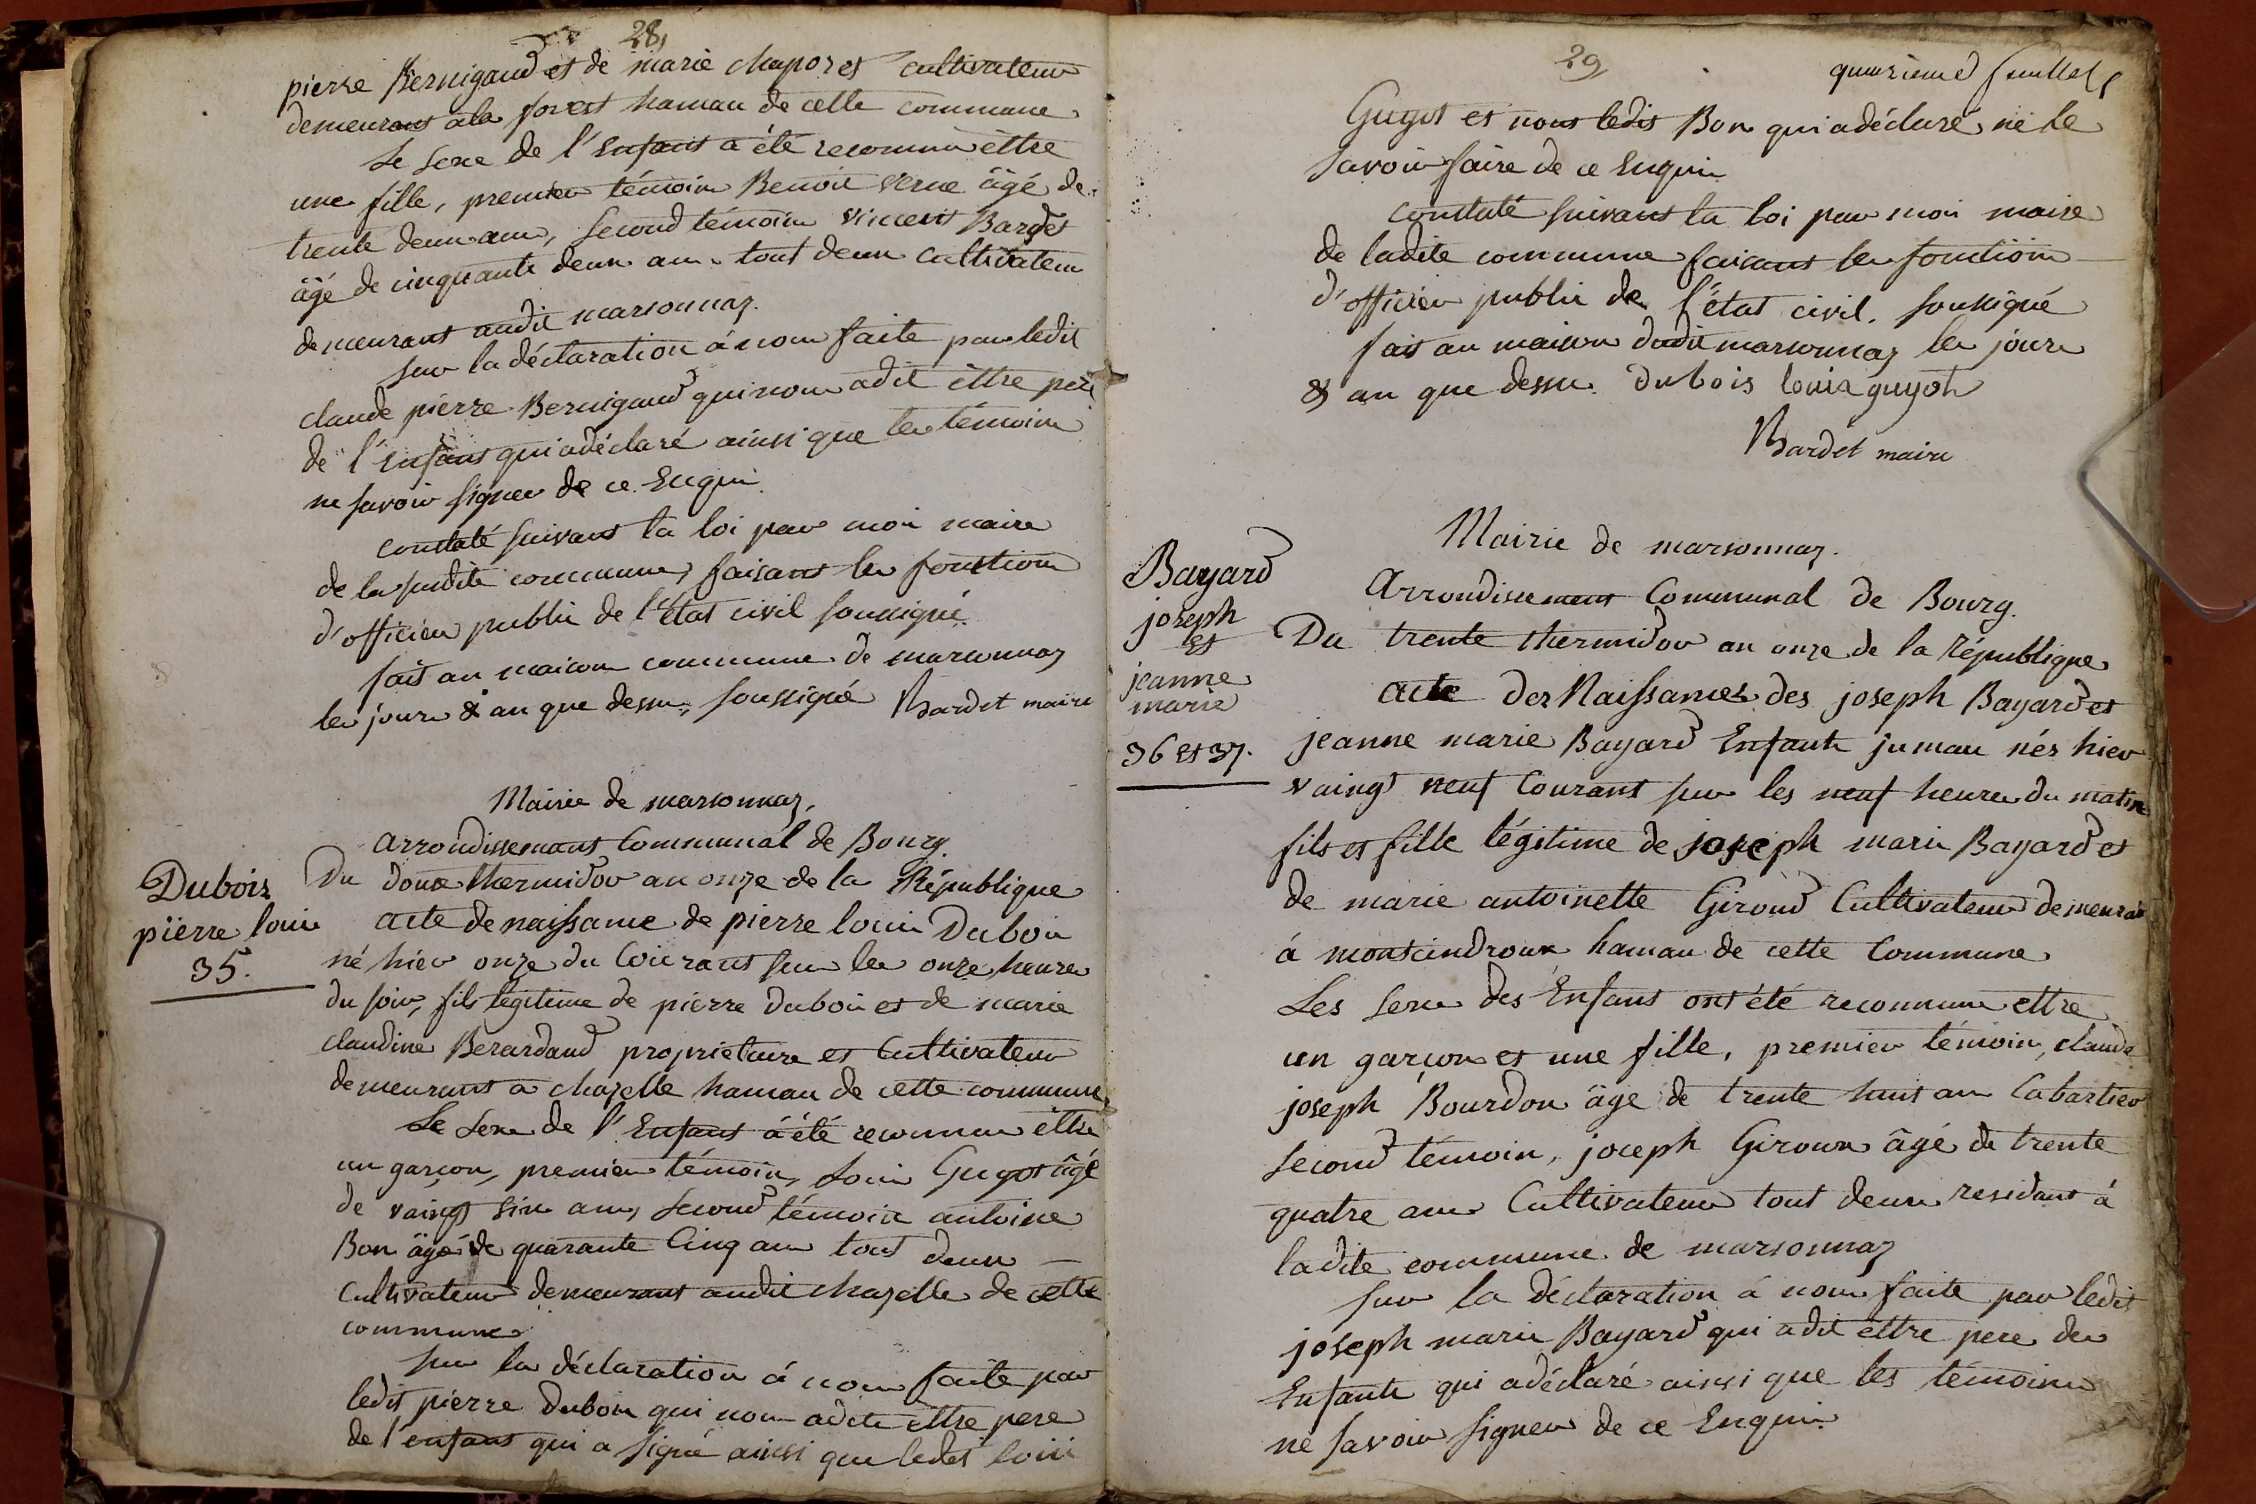 28,
pierre Bernigaud et de marie chaporet cultivateur
demeurant à la forest hamau de cette commune
Le sexe de l'Enfant a été reconnu ettre
une fille, premier témoin Benoit verne âgé de
trente deux ans, second témoin vincent Bardet
âgé de cinquante deux ans tout deux cultivateur
demeurant audit marsonnaz.
sur la déclaration á nous faite par ledit
claude pierre Bernigaud qui nous a dit ettre pere
de l'enfant qui a déclaré ainsi que les témoins
ne savoir signer de ce Enquis
constaté suivant la loi par moi maire
de la susdite commune, faisant les fonctions
d'officier public de l'état civil soussigné.
fait en maison commune de marsonnaz
les jours & an que dessus, soussigné Bardet maire
Mairie de marsonnaz,
arrondissemant Communal de Bourg.
Dubois
pierre louis
35.
Du douze thermidor an onze de la République
acte de naissance de pierre louis Dubois
né hier onze du Courant sur les onze heures
du soir, fils légitime de pierre Dubois et de marie
claudine Berardaud proprietaire et Cultivateur
demeurant a chazelle hamau de cette commune,
Le sexe de l'Enfant á été reconnu ettre
un garçon, premier témoin, Louis Guyot âgé
de vaingt six ans, second témoin antoine
Bon âgé de quarante Cinq ans tout deux
Cultivateur demeurant audit chazelle de cette
commune
sur la déclaration á nous faite par
ledit pierre Dubois qui nous a dit ettre pere
de l'enfant qui a signé ainsi que ledit louis
29,
quinzieme feuillet
Guyot et nous ledit Bon qui a déclaré ne le
savoir faire de ce Enquis
constaté suivant la loi par moi maire
de ladite commune faisant les fonctions
d'officier public de l'état civil. soussigné
fait au maison dudit marsonnaz les jours
& an que dessus. dubois louis guyot
Bardet maire
Mairie de marsonnaz.
Arrondissement Communal de Bourg.
Bayard
joseph
et
jeanne
marie
36 et 37.
Du trente thermidor an onze de la République
acte des Naissances des joseph Bayard et
jeanne marie Bayard Enfants jumau nés hier
vaingt neuf Courant sur les neuf heures du matin
fils et fille légitime de joseph marie Bayard et
de marie antoinette Giroud Cultivateur demeurant
á montcindroux hamau de cette Commune
Les sexe des Enfans ont été reconnus ettre
un garçon et une fille, premier témoin, claude
joseph Bourdon âge de trente huit ans Cabartier
second témoin, joseph Giroux âgé de trente
quatre ans Cultivateur tout deux residant á
ladite commune de marsonnaz
sur la déclaration á nous faite par ledit
joseph marie Bayard qui a dit ettre pere des
Enfants qui a déclaré ainsi que les témoins
né savoir signer de ce Enquis